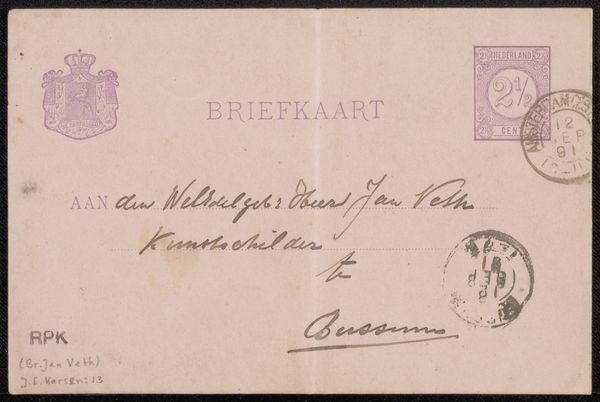 NEDERLAND
2½ 2½
2½
2½ CENT 2½
BRIEFKAART
AMSTERDAM
12
SEP
91
AAN den WelEdelgeb: Heer Jan Veth
Kunstschilder
te
Bussum
RPK
(Br. Jan Veth)
J.E. Karsen: 13